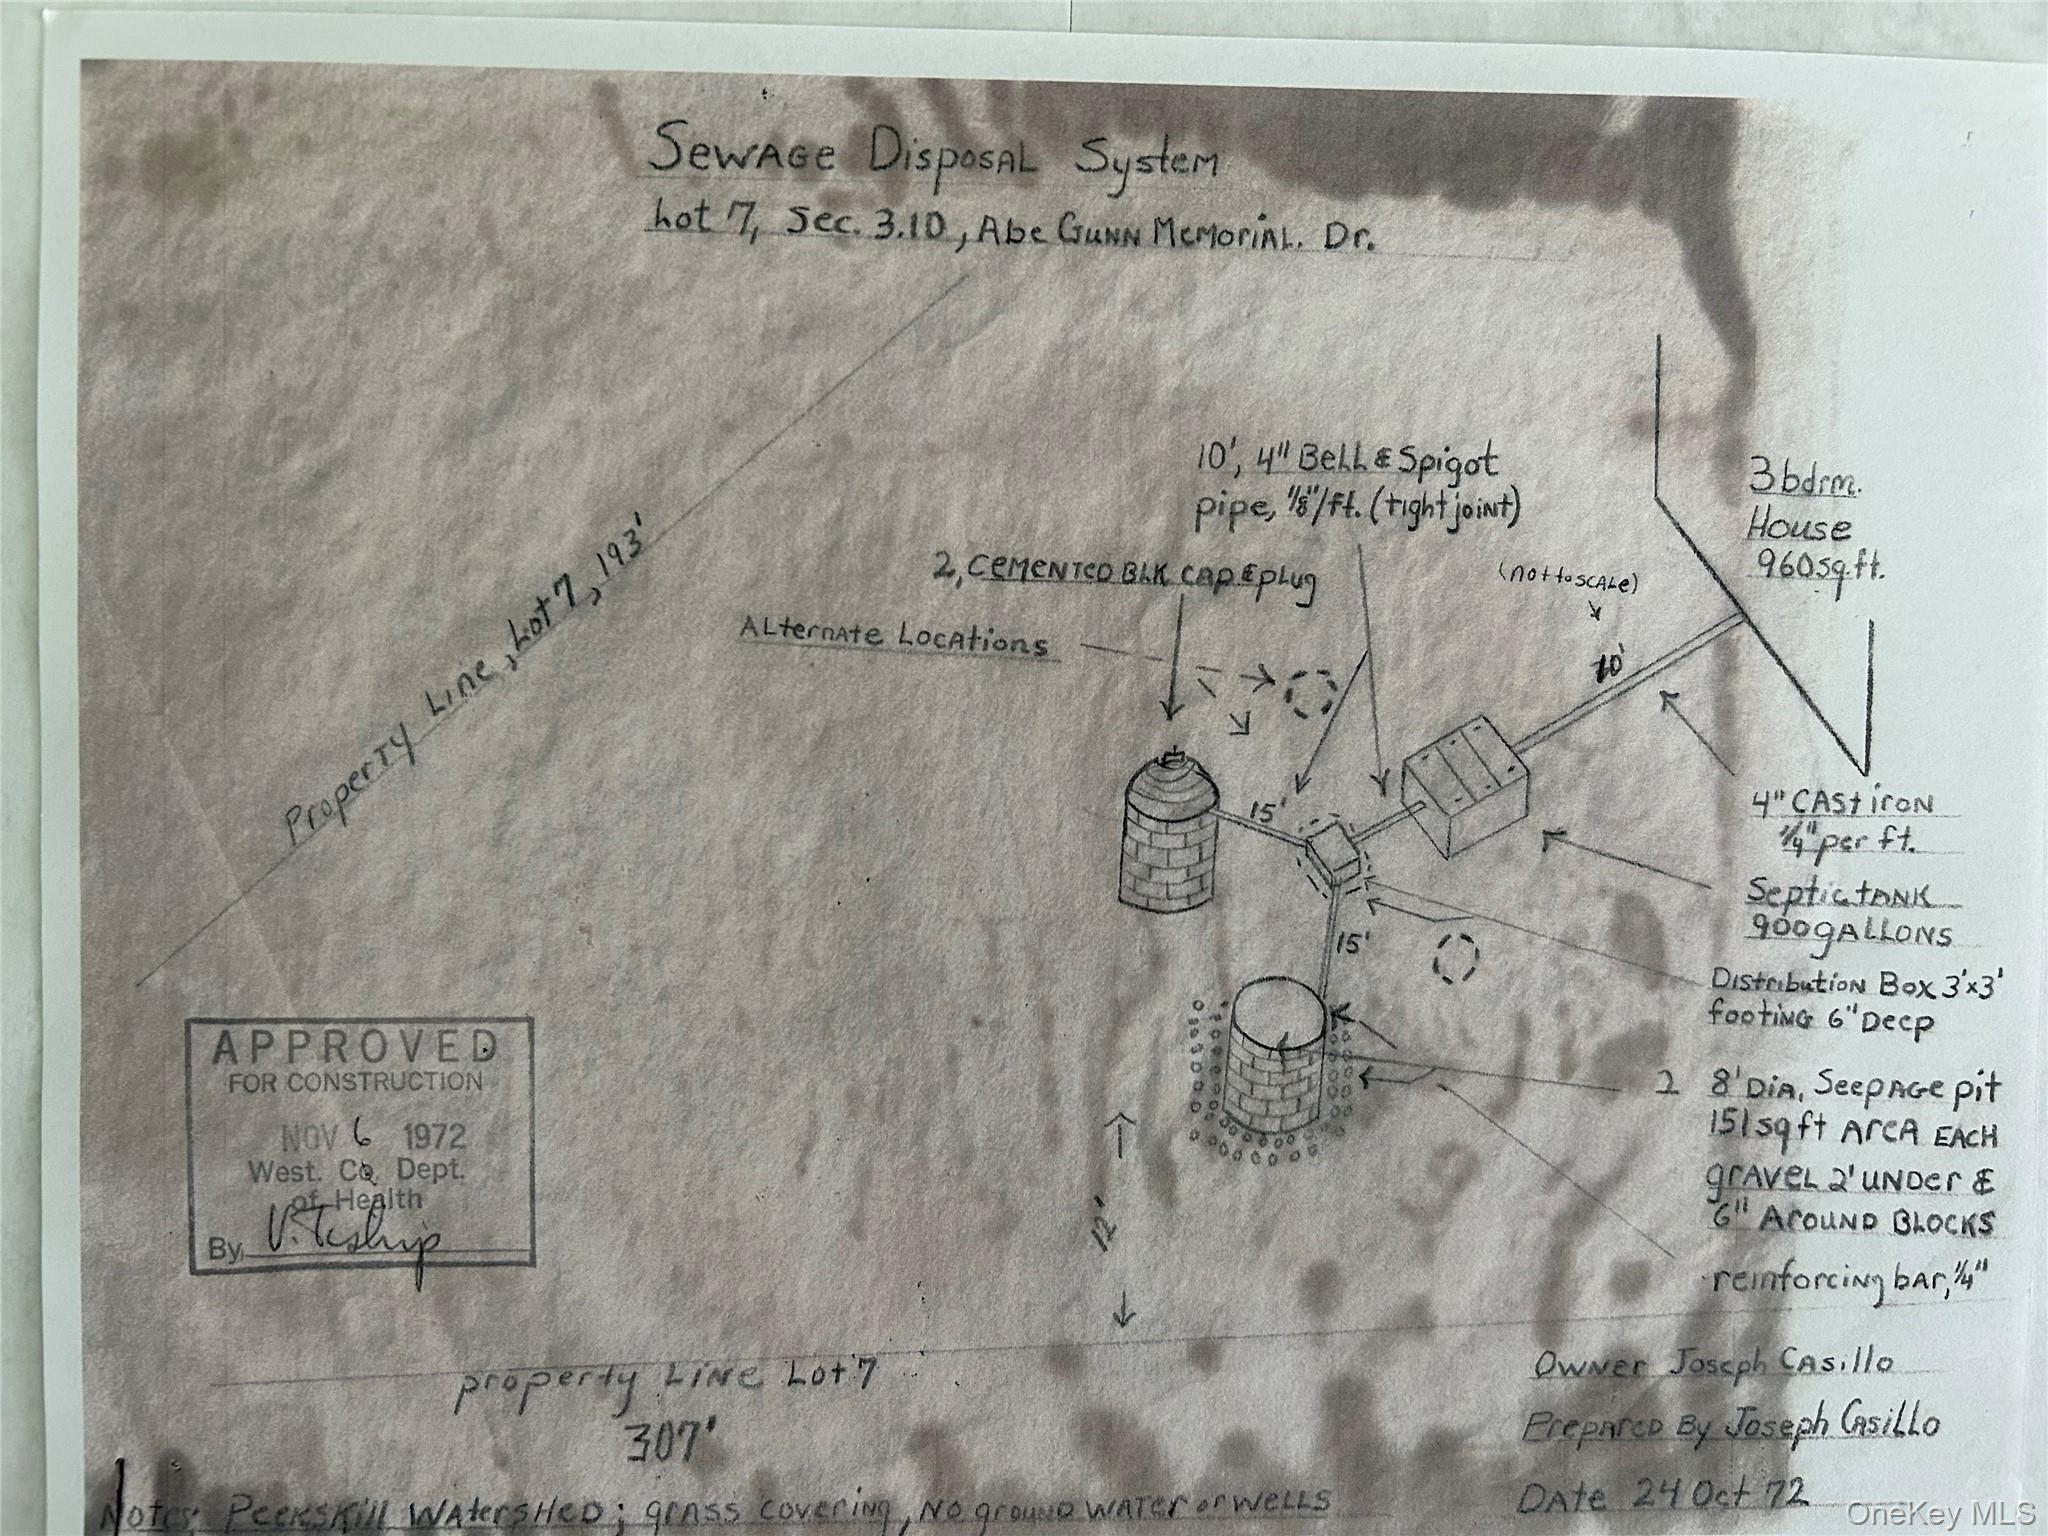 Sewage Disposal System
Lot 7, Sec. 3.10, Abe Gunn Memorial. Dr.
10', 4" Bell & Spigot
pipe, 1/8"/ft. (tight joint)
3 bdrm.
House
960 sq. ft.
2, Cemented Blk Cap & plug
(not to scale)
Alternate Locations
10'
Property Line, Lot 7, 193'
15'
4" Cast iron
1/4" per ft.
Septic tank
900 gallons
15'
Distribution Box 3'x3'
footing 6" Deep
APPROVED
FOR CONSTRUCTION
NOV 6 1972
West. Co. Dept.
of Health
By
2 8' Dia. Seepage pit
151 sq ft Area Each
gravel 2' under &
6" Around Blocks
12'
reinforcing bar, 1/4"
Property Line Lot 7
307'
Owner Joseph Casillo
Prepared By Joseph Casillo
Date 24 Oct 72
Notes: Peekskill Watershed; grass covering, No ground water or wells
OneKey MLS